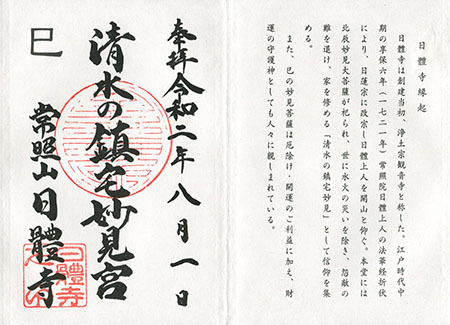 日體寺縁起
日體寺は創建当初、浄土宗観音寺と称した。江戸時代中
期の享保六年（一七二一年）常照院日體上人の法華経折伏
により、日蓮宗に改宗し日體上人を開山と仰ぐ。本堂には
北辰妙見大菩薩が祀られ、世に水火の災いを除き、怨敵の
難を退け、家を修める「清水の鎮宅妙見」として信仰を集
める。
また、巳の妙見菩薩は厄除け・開運のご利益に加え、財
運の守護神としても人々に親しまれている。
奉拝 令和二年八月一日
清水の鎮宅妙見宮
巳
常照山日體寺